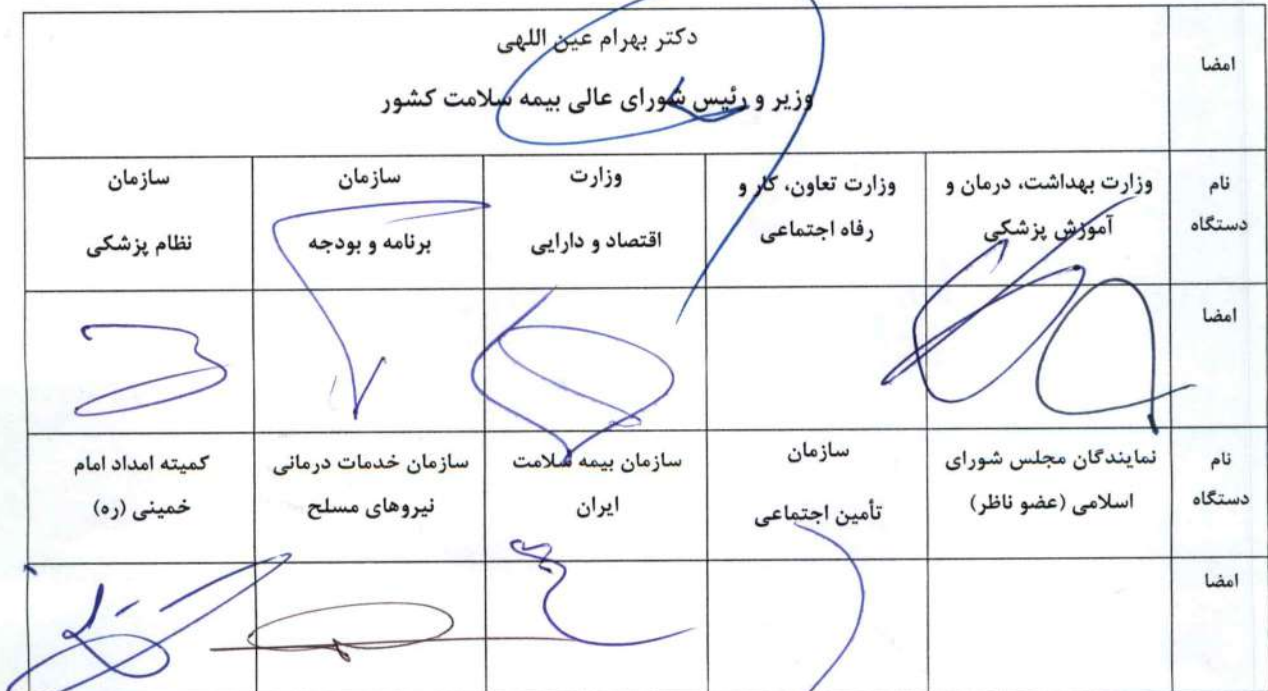 امضا
دکتر بهرام عین اللهی
وزیر و رئیس شورای عالی بیمه سلامت کشور
نام دستگاه
وزارت بهداشت، درمان و
آموزش پزشکی
وزارت تعاون، کار و
رفاه اجتماعی
وزارت
اقتصاد و دارایی
سازمان
برنامه و بودجه
سازمان
نظام پزشکی
امضا
نام
دستگاه
نمایندگان مجلس شورای
اسلامی (عضو ناظر)
سازمان
تأمین اجتماعی
سازمان بیمه سلامت
ایران
سازمان خدمات درمانی
نیروهای مسلح
کمیته امداد امام
خمینی (ره)
امضا